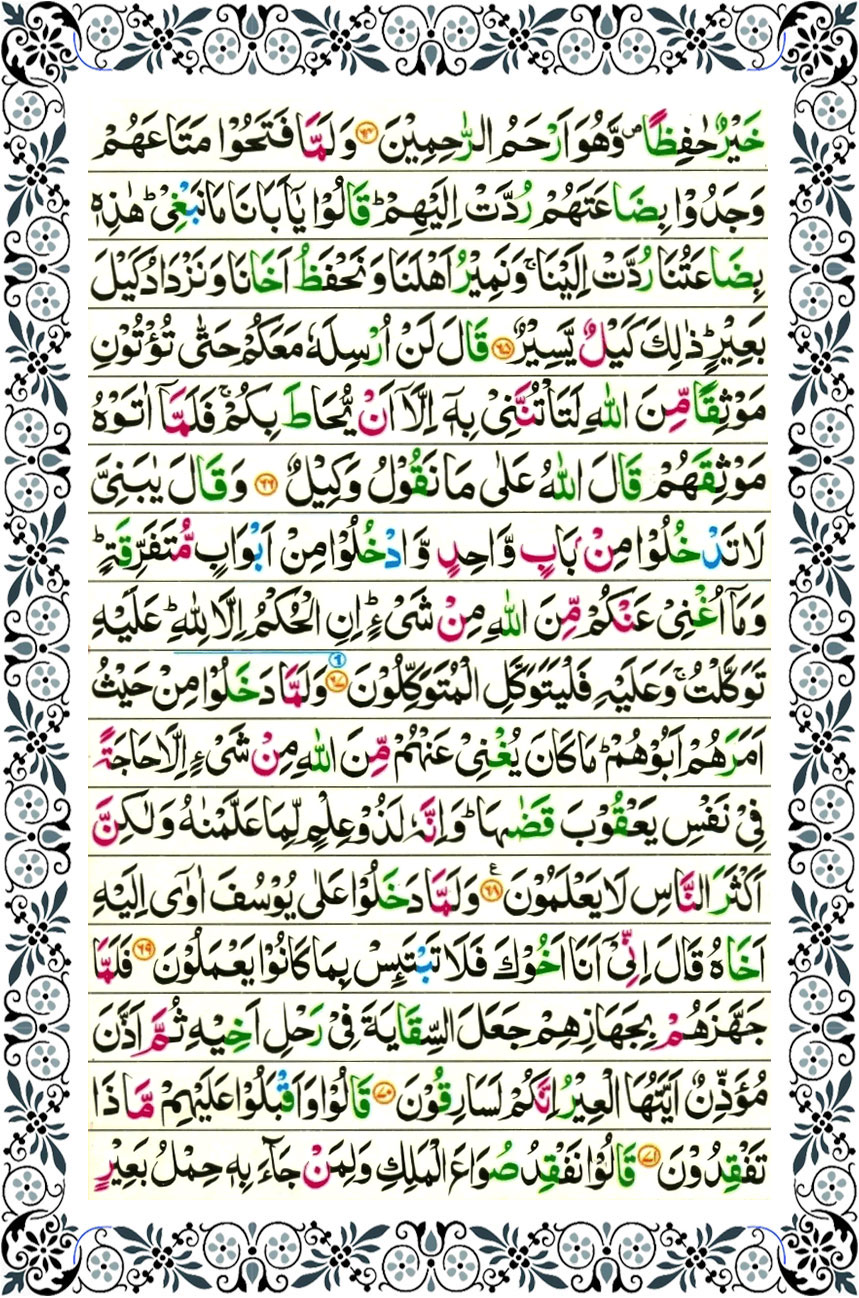 خَيْرٌ حٰفِظًا ۖ وَّهُوَ اَرْحَمُ الرّٰحِمِيْنَ ﴿۶۴﴾ وَلَمَّا فَتَحُوْا مَتَاعَهُمْ
وَجَدُوْا بِضَاعَتَهُمْ رُدَّتْ اِلَيْهِمْ ؕ قَالُوْا يٰۤاَبَانَا مَا نَبْغِىْ ؕ هٰذِهٖ
بِضَاعَتُنَا رُدَّتْ اِلَيْنَا ۚ وَنَمِيْرُ اَهْلَنَا وَنَحْفَظُ اَخَانَا وَنَزْدَادُ كَيْلَ
بَعِيْرٍ ؕ ذٰلِكَ كَيْلٌ يَّسِيْرٌ ﴿۶۵﴾ قَالَ لَنْ اُرْسِلَهٗ مَعَكُمْ حَتّٰى تُؤْتُوْنِ
مَوْثِقًا مِّنَ اللّٰهِ لَتَاْتُنَّنِىْ بِهٖۤ اِلَّاۤ اَنْ يُّحَاطَ بِكُمْ ۚ فَلَمَّاۤ اٰتَوْهُ
مَوْثِقَهُمْ قَالَ اللّٰهُ عَلٰى مَا نَقُوْلُ وَكِيْلٌ ﴿۶۶﴾ وَقَالَ يٰبَنِىَّ
لَا تَدْخُلُوْا مِنْۢ بَابٍ وَّاحِدٍ وَّادْخُلُوْا مِنْ اَبْوَابٍ مُّتَفَرِّقَةٍ ؕ
وَمَاۤ اُغْنِىْ عَنْكُمْ مِّنَ اللّٰهِ مِنْ شَىْءٍ ؕ اِنِ الْحُكْمُ اِلَّا لِلّٰهِ ؕ عَلَيْهِ
تَوَكَّلْتُ ۚ وَعَلَيْهِ فَلْيَتَوَكَّلِ الْمُتَوَكِّلُوْنَ ﴿۶۷﴾ وَلَمَّا دَخَلُوْا مِنْ حَيْثُ
اَمَرَهُمْ اَبُوْهُمْ ؕ مَا كَانَ يُغْنِىْ عَنْهُمْ مِّنَ اللّٰهِ مِنْ شَىْءٍ اِلَّا حَاجَةً
فِىْ نَفْسِ يَعْقُوْبَ قَضٰىهَا ؕ وَاِنَّهٗ لَذُوْ عِلْمٍ لِّمَا عَلَّمْنٰهُ وَلٰكِنَّ
اَكْثَرَ النَّاسِ لَا يَعْلَمُوْنَ ﴿۶۸﴾ ع وَلَمَّا دَخَلُوْا عَلٰى يُوْسُفَ اٰوٰٓى اِلَيْهِ
اَخَاهُ قَالَ اِنِّىْۤ اَنَا اَخُوْكَ فَلَا تَبْتَئِسْ بِمَا كَانُوْا يَعْمَلُوْنَ ﴿۶۹﴾ فَلَمَّا
جَهَّزَهُمْ بِجَهَازِهِمْ جَعَلَ السِّقَايَةَ فِىْ رَحْلِ اَخِيْهِ ثُمَّ اَذَّنَ
مُؤَذِّنٌ اَيَّتُهَا الْعِيْرُ اِنَّكُمْ لَسَارِقُوْنَ ﴿۷۰﴾ قَالُوْا وَاَقْبَلُوْا عَلَيْهِمْ مَّا ذَا
تَفْقِدُوْنَ ﴿۷۱﴾ قَالُوْا نَفْقِدُ صُوَاعَ الْمَلِكِ وَلِمَنْ جَآءَ بِهٖ حِمْلُ بَعِيْرٍ